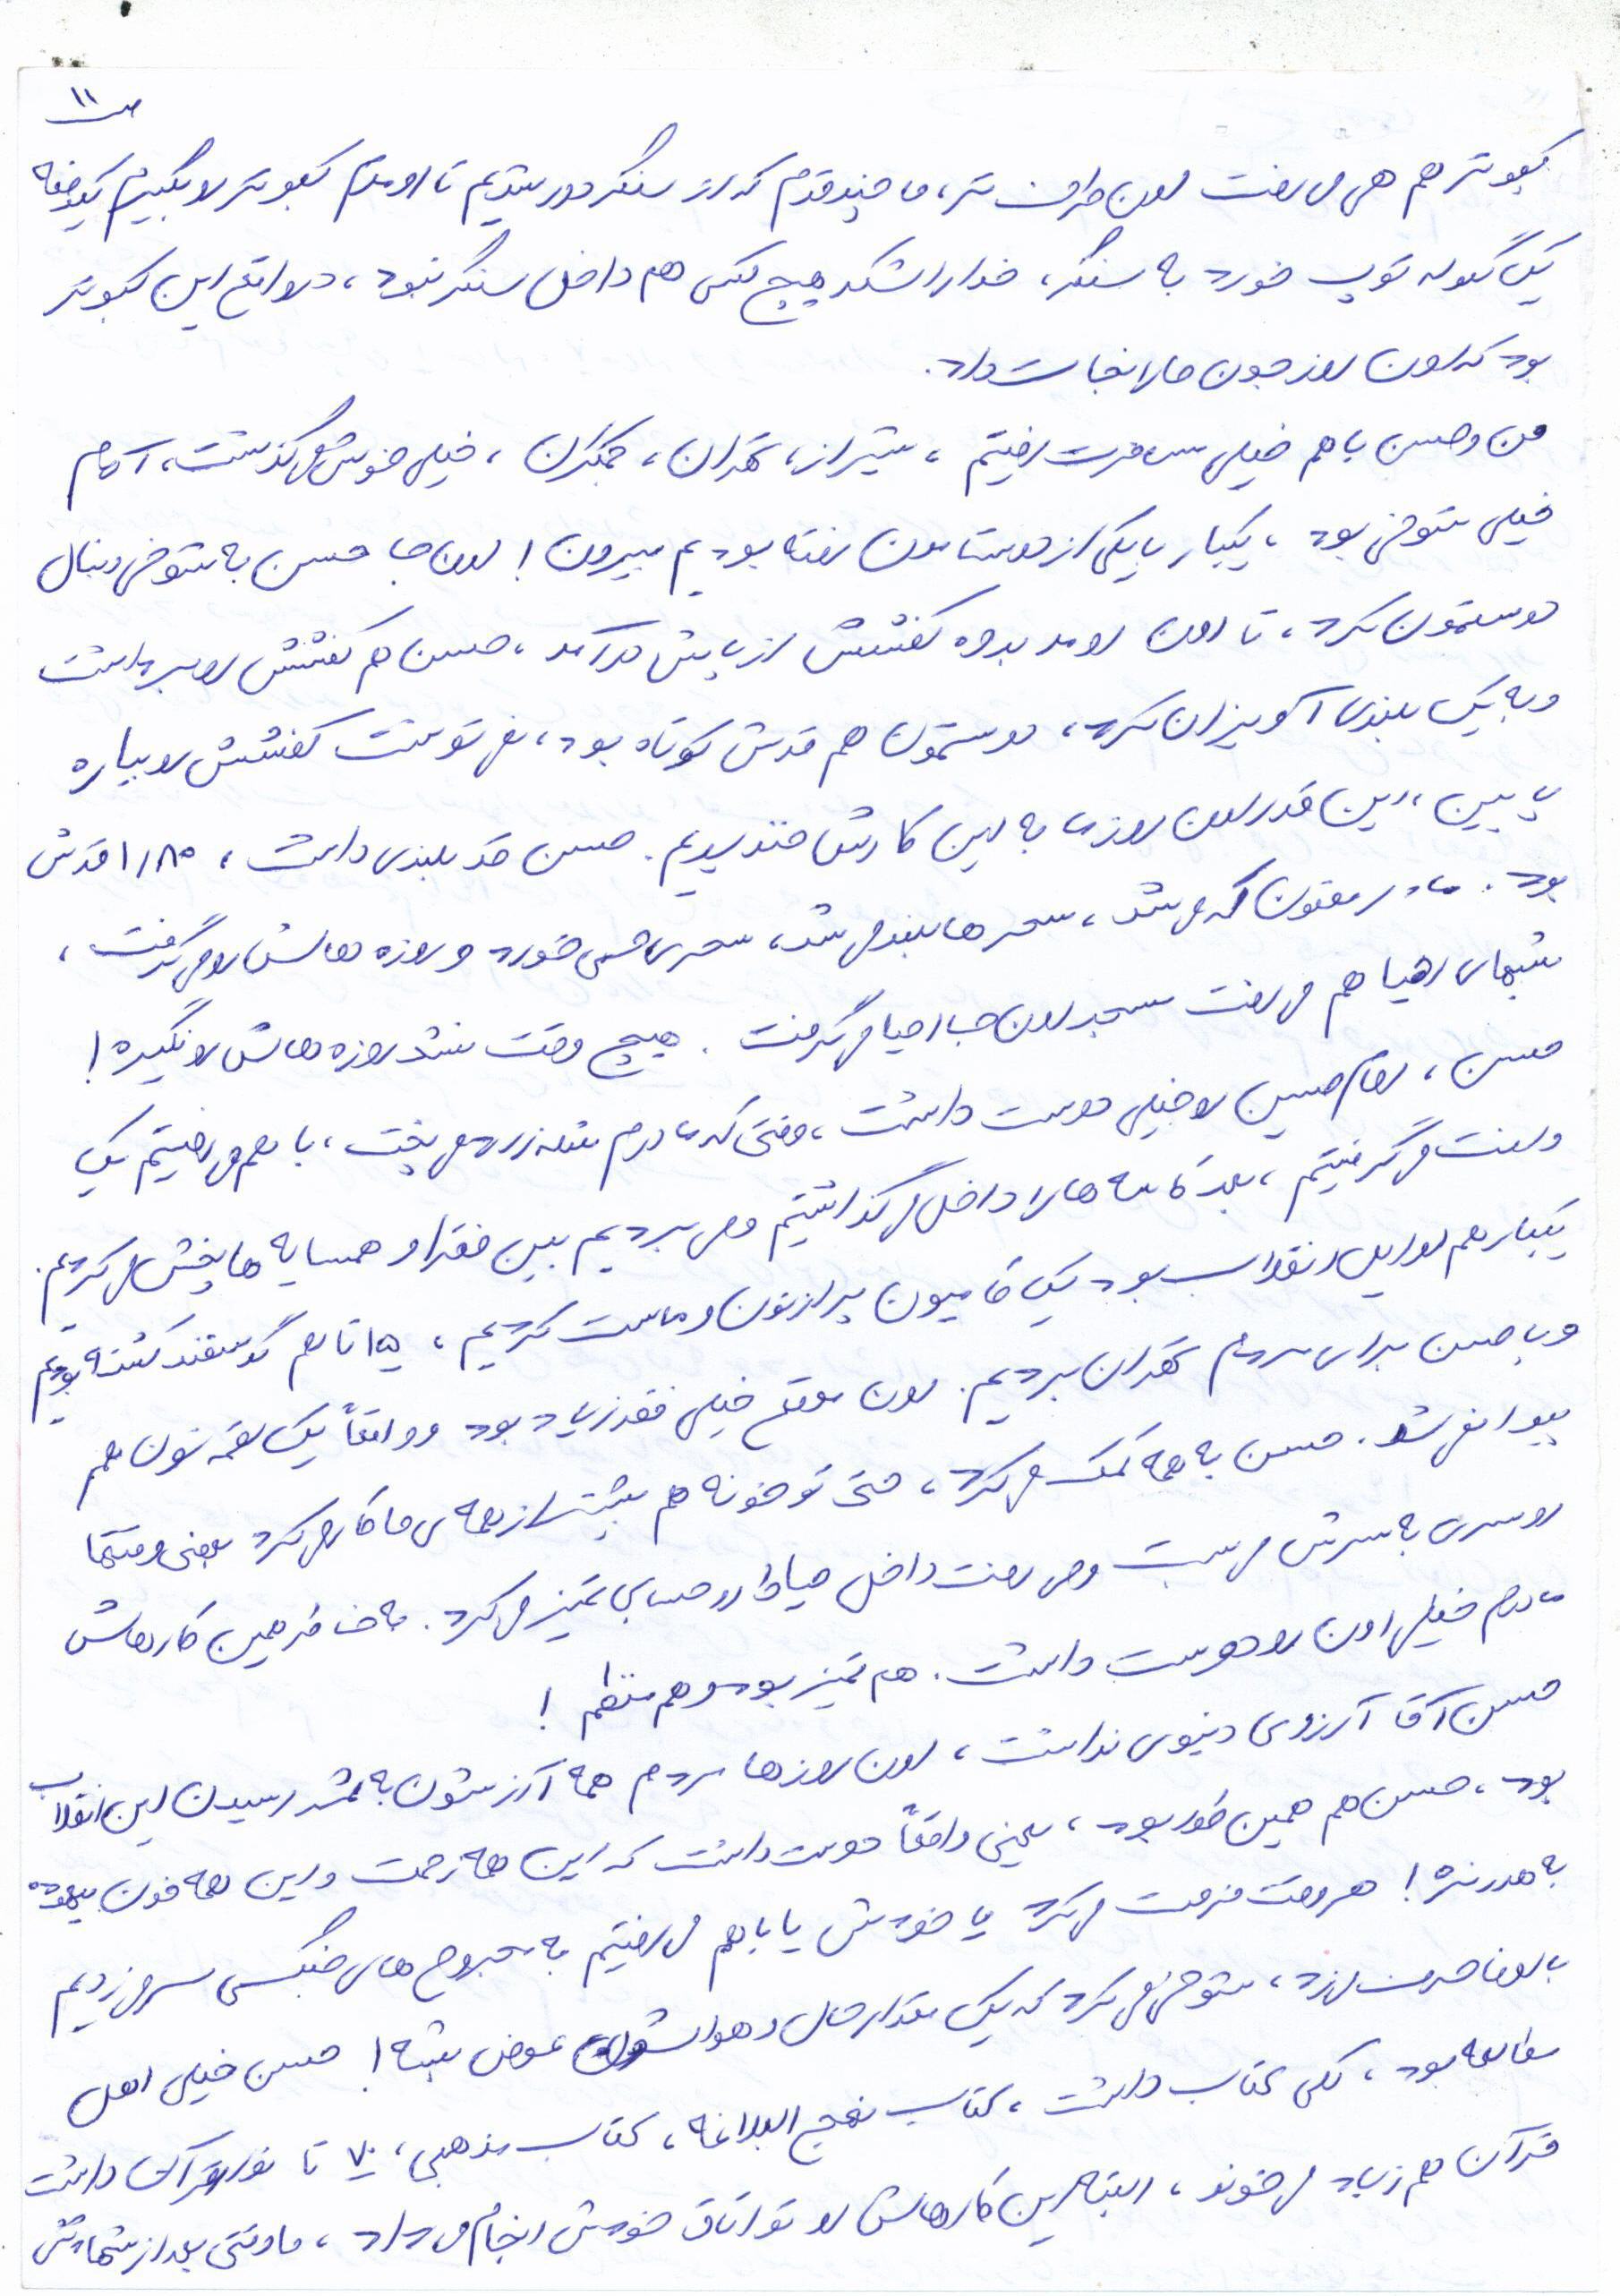 ص ۱۱
کبوتر هم هی می رفت اون طرف تر، ما چند قدم که از سنگر دور شدیم تا اومدیم کبوتر رو بگیریم یکدفعه
یک گلوله توپ خورد به سنگر، خدا را شکر هیچ کس هم داخل سنگر نبود، در واقع این کبوتر
بود که اون روز جون ما را نجات داد.
من و حسن با هم خیلی مسافرت رفتیم، شیراز، تهران، جمکران، خیلی خوش می گذشت، آدم
خیلی شوخی بود، یکبار با یکی از دوستامون رفته بودیم بیرون! اون جا حسن به شوخی دنبال
دوستمون کرد، تا اون اومد بدوه کفشش از پاش درآمد، حسن هم کفشش رو برداشت
و به یک بلندی آویزان کرد، دوستمون هم قدش کوتاه بود، نمی تونست کفشش رو بیاره
پایین، این قدر اون روز ما به این کارش خندیدیم. حسن قد بلندی داشت، ۱/۸۰ قدش
بود. ماه رمضون که می شد، سحرها بلند می شد، سحری می خورد و روزه هاش رو می گرفت،
شبهای احیا هم می رفت مسجد اون جا احیا می گرفت. هیچ وقت نشد روزه هاش رو نگیره!
حسن، امام حسین رو خیلی دوست داشت، وقتی که مادرم شله زرد می پخت، با هم می رفتیم یک
وانت می گرفتیم، بعد کاسه ها را داخل می گذاشتیم و می بردیم بین فقرا و همسایه ها پخش می کردیم.
یکبار هم اوایل انقلاب بود یک کامیون پر از نون و ماست کردیم، ۱۵ تا هم گوسفند کشته بودیم
و با حسن برای مردم تهران بردیم. اون موقع خیلی فقر زیاد بود و واقعاً یک لقمه نون هم
پیدا نمی شد. حسن به همه کمک می کرد، حتی تو خونه هم بیشتر از همه ی ما کار می کرد بعضی وقتها
روسری به سرش می بست و می رفت داخل حیاط رو حسابی تمیز می کرد. به خاطر همین کارهاش
مادرم خیلی اون رو دوست داشت. هم تمیز بود و هم منظم!
حسن آقا آرزوی دنیوی نداشت، اون روزها مردم همه آرزشون به ثمر رسیدن این انقلاب
بود، حسن هم همین طور بود، یعنی واقعاً دوست داشت که این همه زحمت و این همه خون بیهوده
به هدر نره! هر وقت فرصت می کرد یا خودش یا با هم می رفتیم به مجروح های جنگی سر می زدیم
با اونا حرف می زد، شوخی می کرد که یک مقدار حال و هواشون عوض بشه! حسن خیلی اهل
مطالعه بود، کلی کتاب داشت، کتاب نهج البلاغه، کتاب مذهبی، ۷۰ تا نوار قرآن داشت
قرآن هم زیاد می خوند، البته این کارهاش رو تو اتاق خودش انجام می داد، ما وقتی بعد از شهادتش